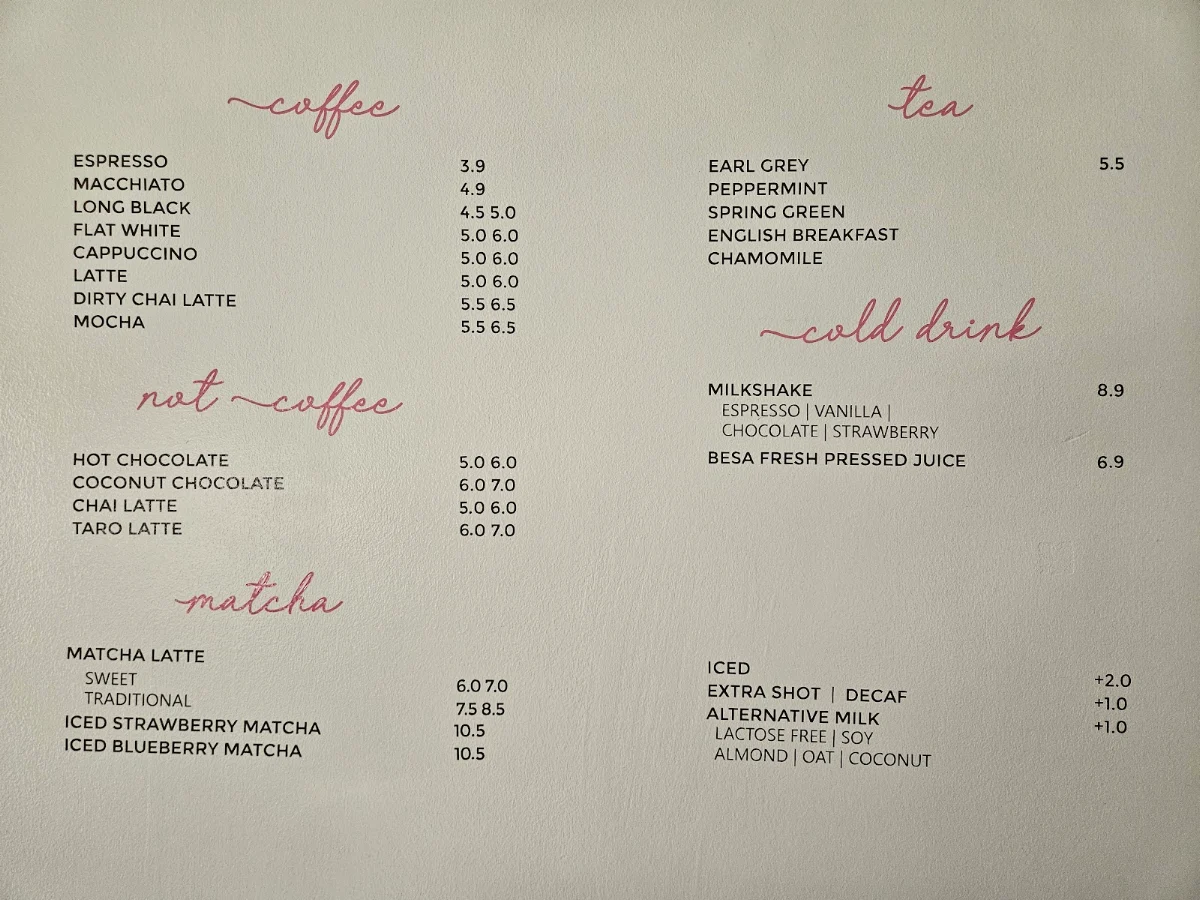 coffee
ESPRESSO 3.9
MACCHIATO 4.9
LONG BLACK 4.5 5.0
FLAT WHITE 5.0 6.0
CAPPUCCINO 5.0 6.0
LATTE 5.0 6.0
DIRTY CHAI LATTE 5.5 6.5
MOCHA 5.5 6.5
not coffee
HOT CHOCOLATE 5.0 6.0
COCONUT CHOCOLATE 6.0 7.0
CHAI LATTE 5.0 6.0
TARO LATTE 6.0 7.0
matcha
MATCHA LATTE
SWEET 6.0 7.0
TRADITIONAL 7.5 8.5
ICED STRAWBERRY MATCHA 10.5
ICED BLUEBERRY MATCHA 10.5
tea
EARL GREY 5.5
PEPPERMINT
SPRING GREEN
ENGLISH BREAKFAST
CHAMOMILE
cold drink
MILKSHAKE 8.9
ESPRESSO | VANILLA |
CHOCOLATE | STRAWBERRY
BESA FRESH PRESSED JUICE 6.9
ICED +2.0
EXTRA SHOT | DECAF +1.0
ALTERNATIVE MILK +1.0
LACTOSE FREE | SOY
ALMOND | OAT | COCONUT